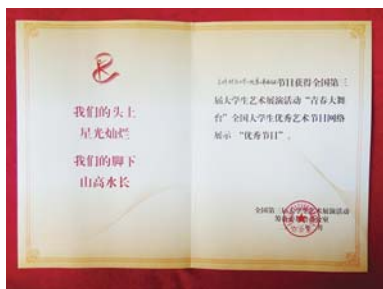 我们的头上
星光灿烂
我们的脚下
山高水长
节目获得全国第三
届大学生艺术展演活动“青春大舞
台”全国大学生优秀艺术节目网络
展示“优秀节目”。
全国第三届大学生艺术展演活动